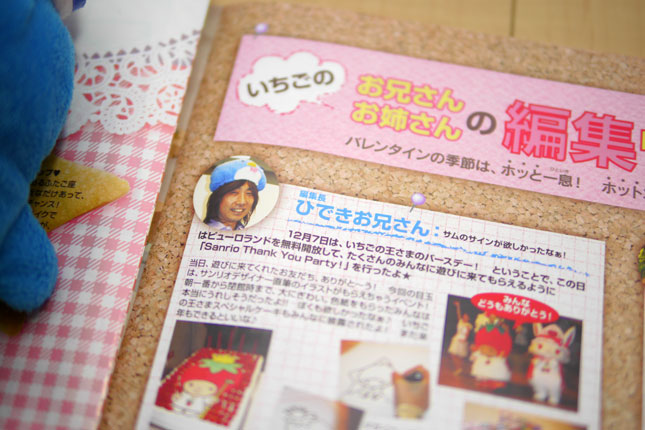 いちごの
お兄さん
お姉さん
の編集
バレンタインの季節は、ホッと一息! ホット
編集長
ひできお兄さん:サムのサインが欲しかったなぁ!
12月7日は、いちごの王さまのバースデー! ということで、この日
はピューロランドを無料開放して、たくさんのみんなに遊びに来てもらえるように
「Sanrio Thank You Party!」を行ったよ★
当日、遊びに来てくれたお友だち、ありがとう! 今回の目玉
は、サンリオデザイナー直筆のイラストがもらえちゃうイベント!
朝一番から閉館時まで、大にぎわい。色紙をもらったみんなは
本当にうれしそうだったよ! ぼくも欲しかったなぁ。 いちご
の王さまスペシャルケーキもみんなに披露されたよ! また来
年もできるといいな♪
みんな
どうもありがとう!
ふたご座
なだけあって、
チャンス!
イクで